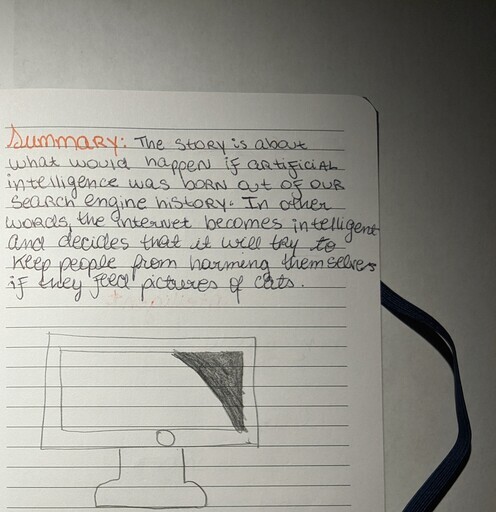 Summary: The story is about
what would happen if artificial
intelligence was born out of our
search engine history. In other
words, the internet becomes intelligent
and decides that it will try to
keep people from harming themselves
if they feed pictures of cats.